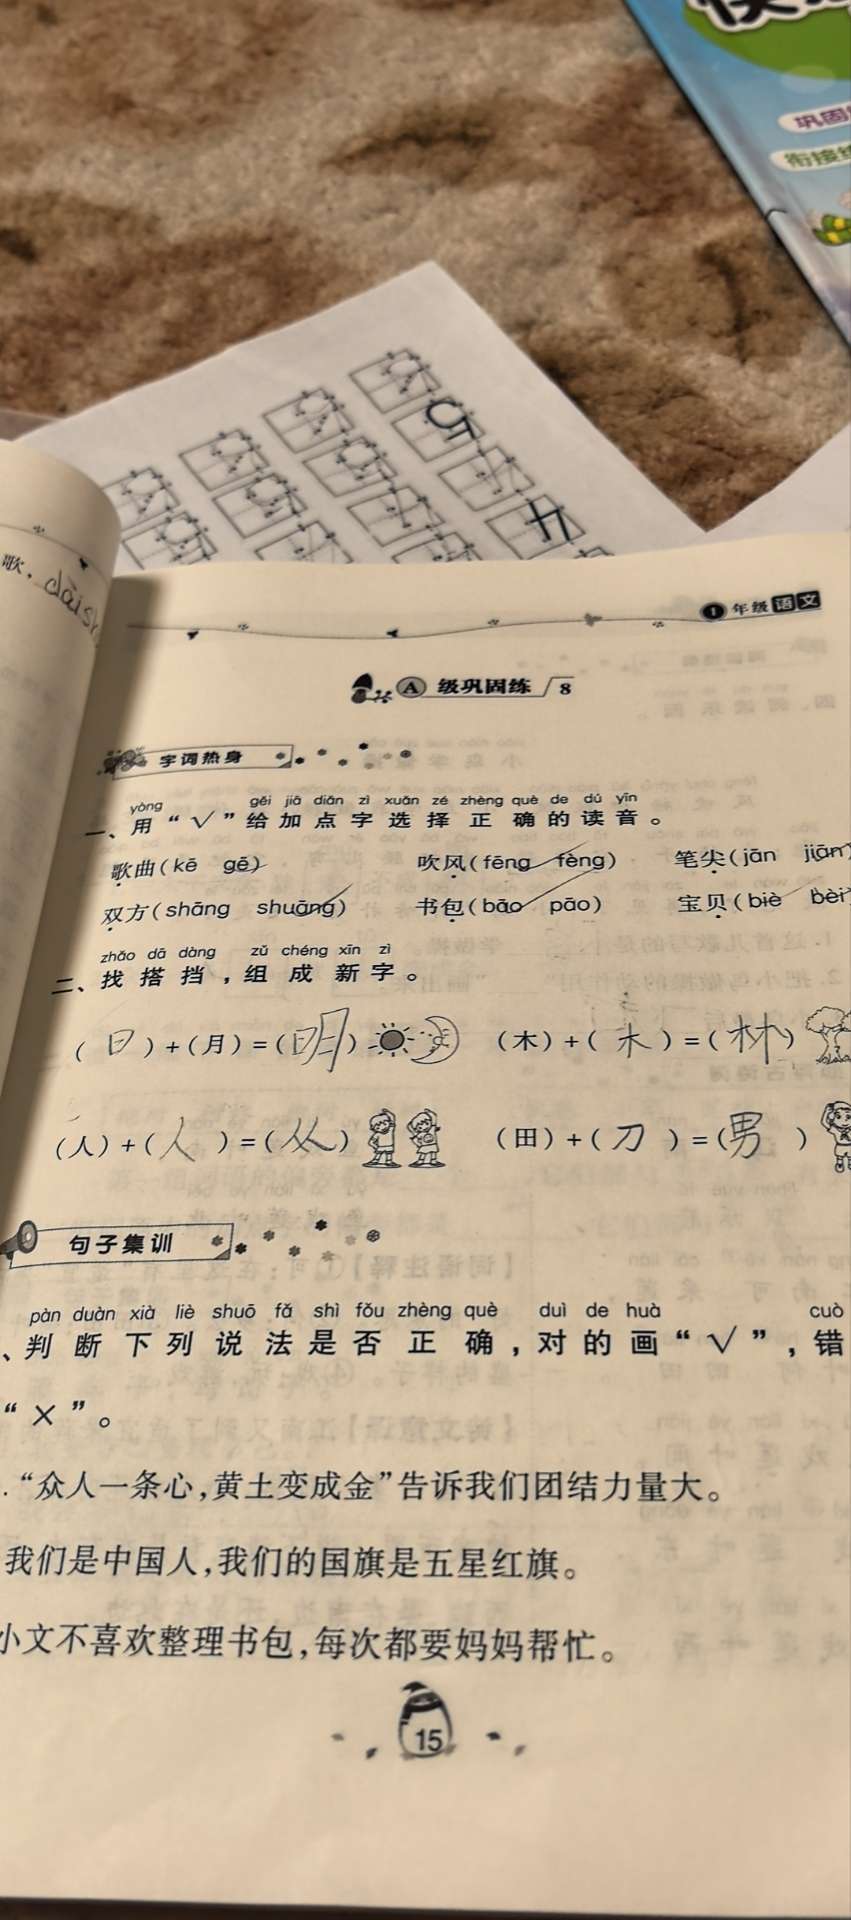 巩固
衔接
九
歌，
1 年级 语文
A 级巩固练 8
字词热身
yòng gěi jiā diǎn zì xuǎn zé zhèng què de dú yīn
一、用“√”给加点字选择正确的读音。
歌曲(kē gē) 吹风(fēng fèng) 笔尖(jān jiān)
双方(shāng shuāng) 书包(bāo pāo) 宝贝(biè bèi)
zhǎo dā dàng zǔ chéng xīn zì
二、找搭挡，组成新字。
(日)+(月)=(明) (木)+(木)=(林)
(人)+(人)=(从) (田)+(刀)=(男)
句子集训
pàn duàn xià liè shuō fǎ shì fǒu zhèng què duì de huà cuò
、判断下列说法是否正确，对的画“√”，错
“×”。
.“众人一条心，黄土变成金”告诉我们团结力量大。
我们是中国人，我们的国旗是五星红旗。
小文不喜欢整理书包，每次都要妈妈帮忙。
15